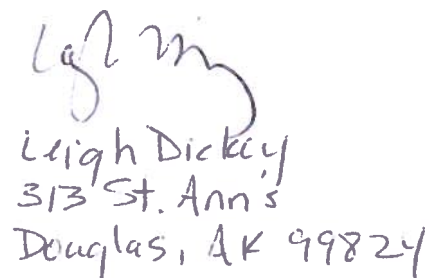 Leigh Dickey
313 St. Ann's
Douglas, AK 99824